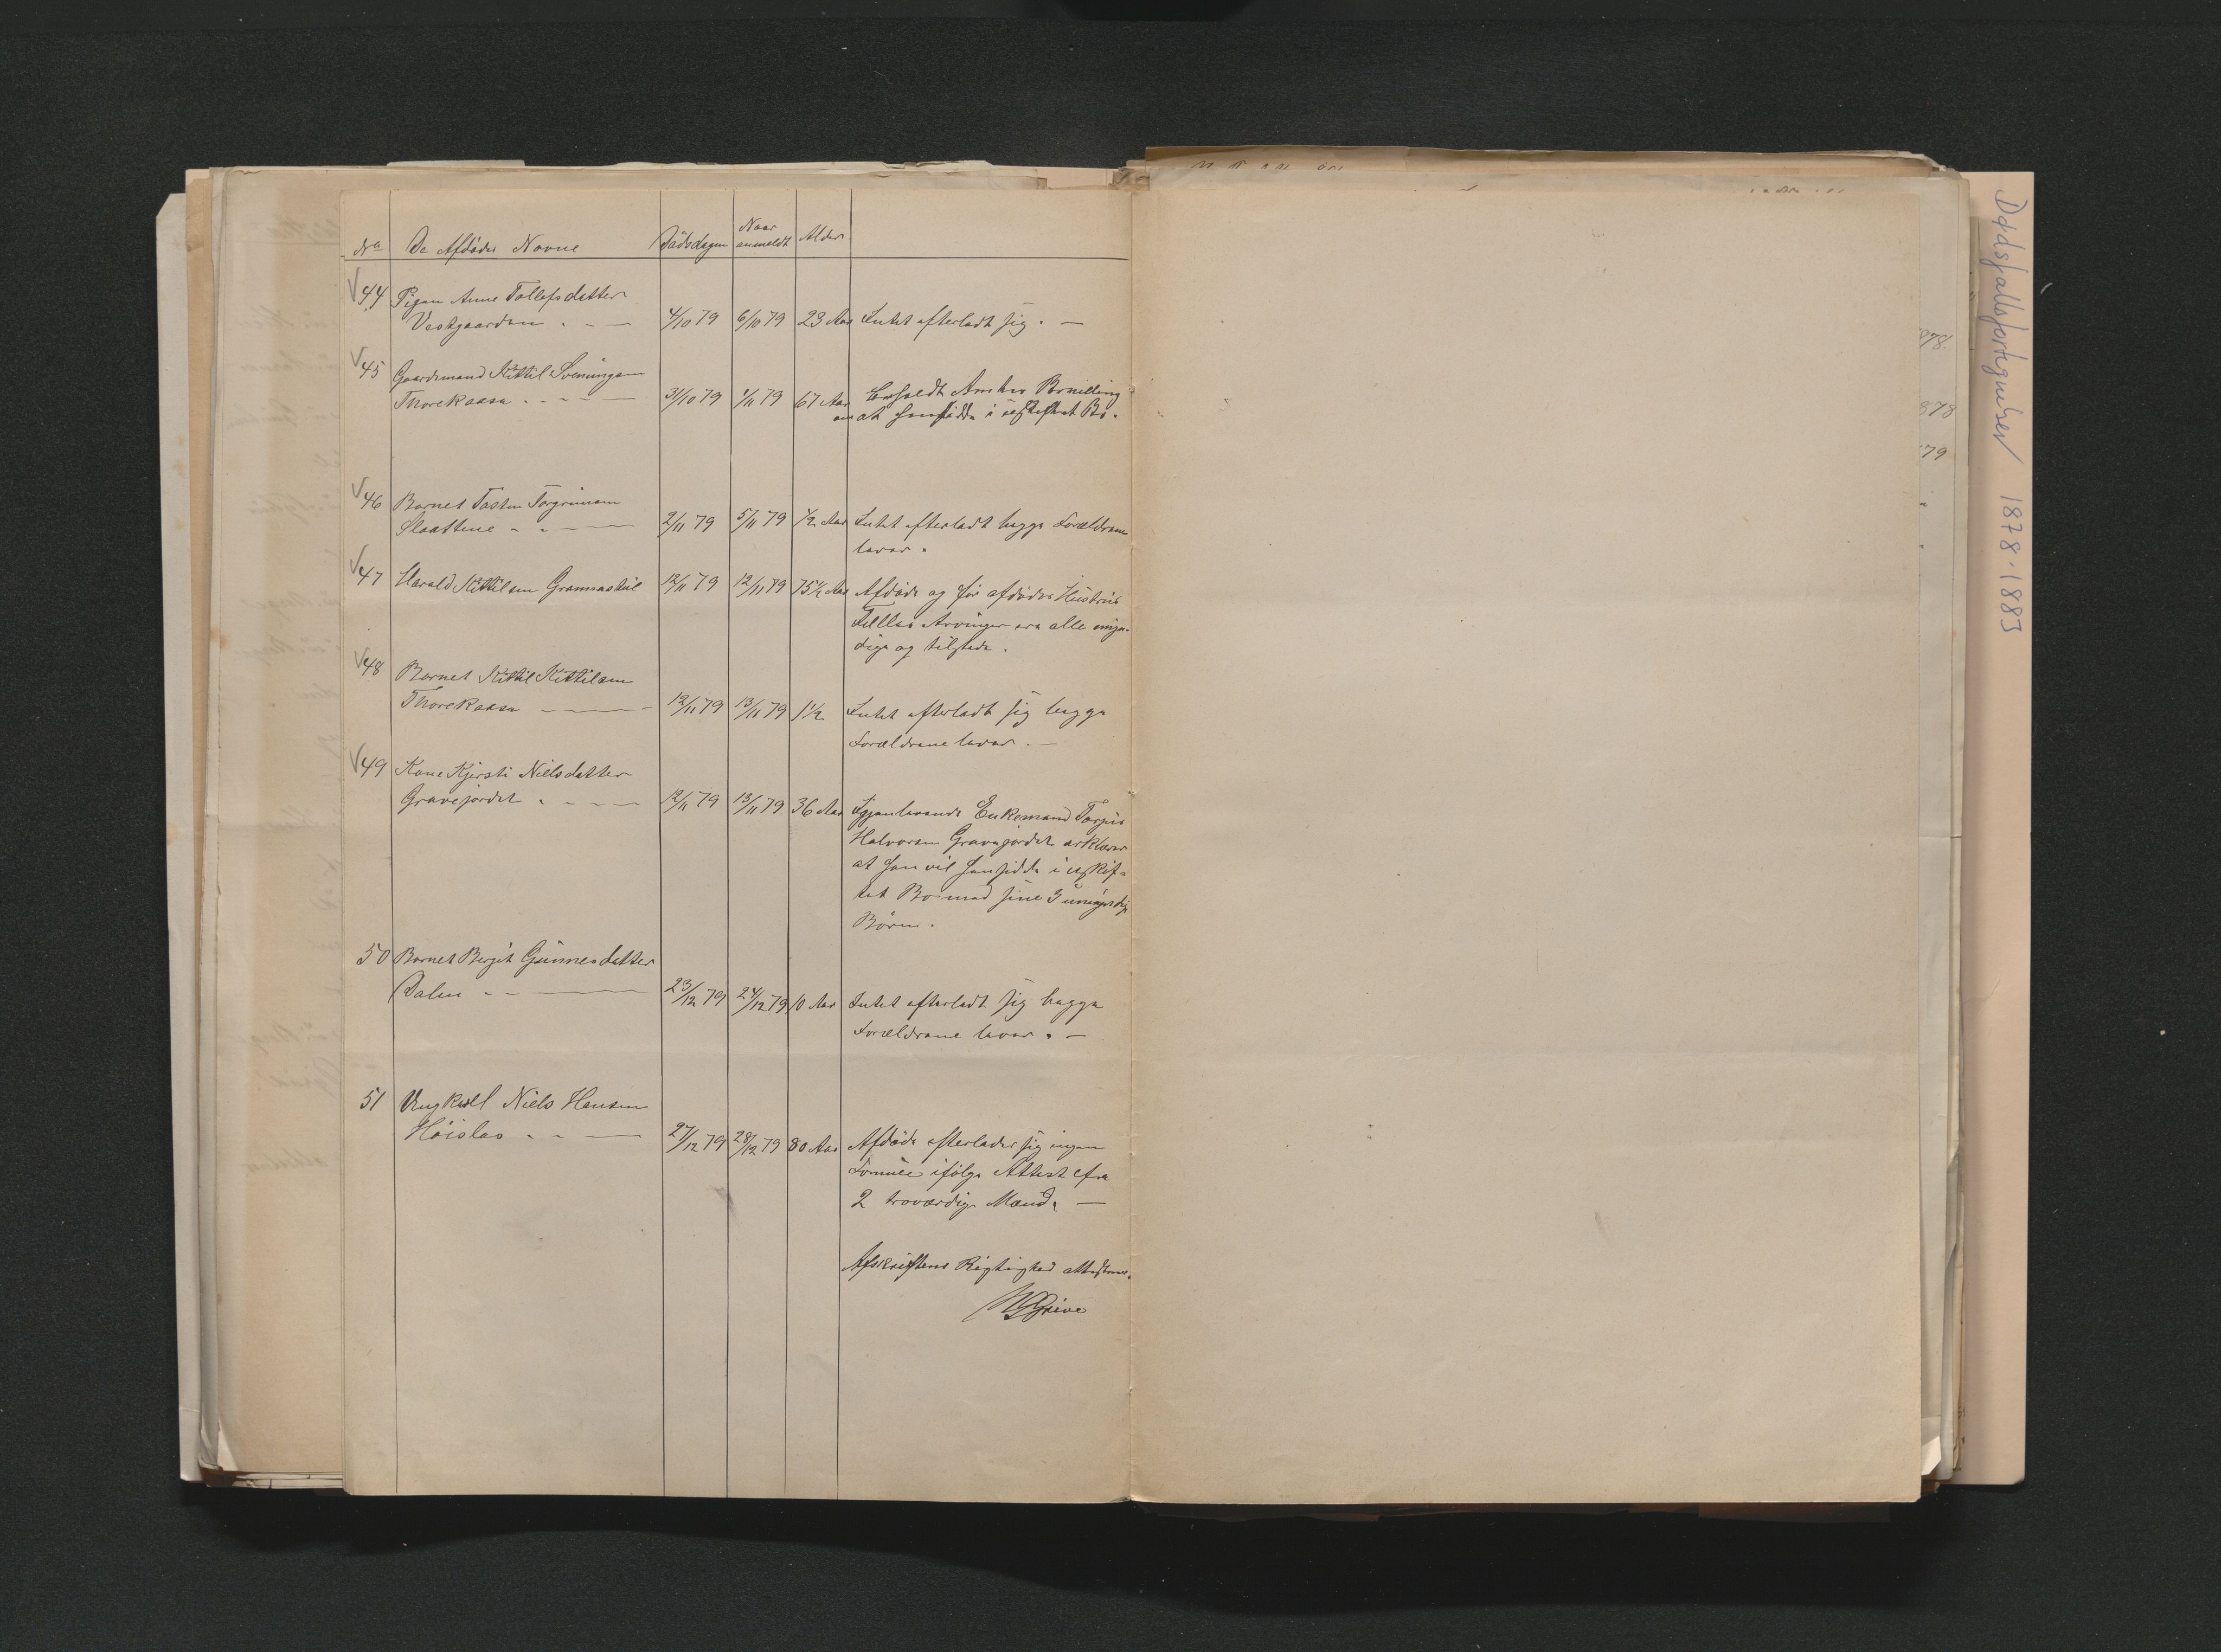 No De Afdødes Navne Dödsdagen Naar anmeldt Alder
44 Pigen Anne Tollefsdatter
Vestgaarden 4/10 79 6/10 79 23 Aar Intet efterladt sig. —
45 Gaardmand Kittil Sveningsen
Thorekaasa 31/10 79 1/11 79 67 Aar Amtets Bevilling
om at hensidde i uskiftet Bo.
46 Barnet Torgrimsen
Slaattene 2/11 79 5/11 79 1/2 Aar Intet efterladt begge Forældrene
lever.
47 Harald Kittilsen Grannastul 12/11 79 12/11 79 75 1/2 Aar Afdøde og før afdødes Hustrus
Fælles Arvinger ere alle myn-
dige og tilstede.
48 Barnet Kittil Kittilsen
Thorekaasa 12/11 79 13/11 79 1 1/2 Intet efterladt sig begge
Forældrene lever. —
49 Kone Kjersti Nielsdatter
Gravejordet 12/11 79 13/11 79 36 Aar Igjenlevende Enkemand Torjus
Halvorsen Gravejordet erklærer
at han vil hensidde i uskif-
tet Bo med sine 3 umyndige
Børn.
50 Barnet Bergit Gunnesdatter
Dalen 23/12 79 24/12 79 10 Aar Intet efterladt sig begge
Forældrene lever. —
51 Ungkarl Niels Hansen
Höislas 27/12 79 28/12 79 80 Aar Afdøde efterlader sig ingen
Formue ifølge Attest fra
2 troværdige Mænd. —
Afskriftens Rigtighed attesteres.
Greive
Dødsfallsfortegnelser 1878-1883
878.
878
79